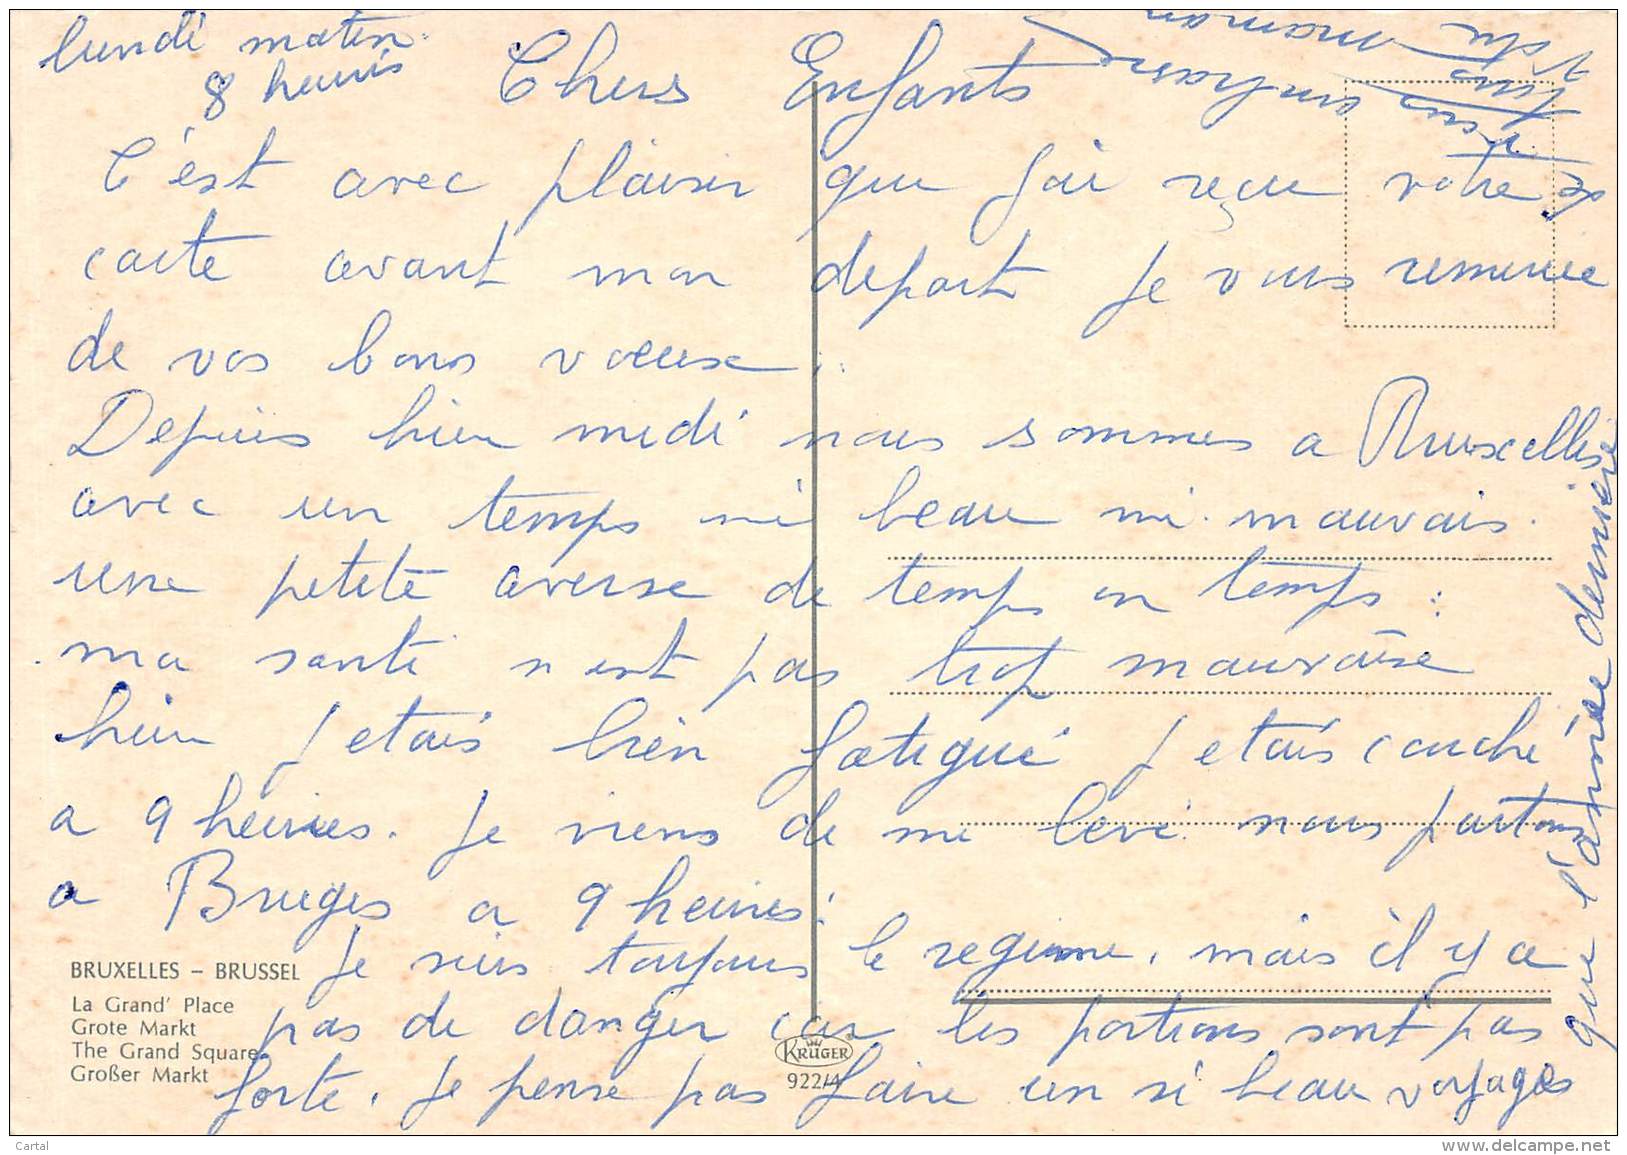 lundi matin
8 heures
Chers Enfants
C'est avec plaisir que j'ai reçu votre
carte avant mon depart je vous remercie
de vos bons voeux.
Depuis hier midi nous sommes a Bruxelles
avec un temps ni beau ni mauvais.
une petite averse de temps en temps :
ma santé n'est pas trop mauvaise
hier j etais bien fatigué j etais couché
a 9 heures. je viens de me levé nous partons
a Bruges a 9 heures.
je suis toujours le regime, mais il y a
pas de danger car les portions sont pas
forte. je pense pas faire un si beau voyages
que l'année derniere
vous embrasse
maman
BRUXELLES – BRUSSEL
La Grand' Place
Grote Markt
The Grand Square
Großer Markt
KRÜGER
922/4
Cartal
www.delcampe.net